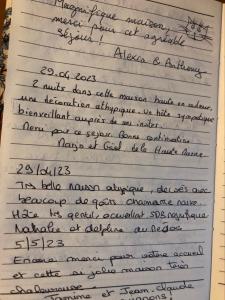 Magnifique maison,
merci pour cet agréable
séjour !
Alexia & Anthony
29.04.2023
2 nuits dans cette maison haute en couleur,
une décoration athypique. Un hôte sympatique
bienveillant auprès de ses invités.
Merci pour ce séjour. Bonne continuation.
Marjo et Gaël, de la Haute Marne.
29/04/23
Très belle maison atypique, décorée avec
beaucoup de goûts, charmante
Hôte très gentil, accueillant SDB magnifique
Nathalie et delphine du
5/5/23
Encore merci pour votre accueil
et cette si jolie maison très
chaleureuse
et Jean-claude